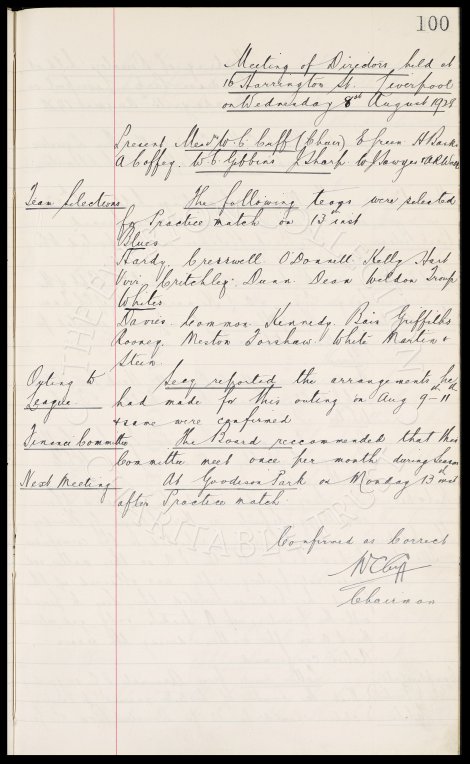 100
Meeting of Directors held at
16 Harrington St. Liverpool
on Wednesday 8th August 1928
Present Messrs W. C. Cuff (Chair) E Green H Banks
A Coffey. W. C. Gibbins. J Sharp W J Sawyer &
Team Selections The following teams were selected
for Practice match on 13th inst
Blues
Hardy. Cresswell O'Donnell. Kelly Hart
Virr Critchley. Dunn. Dean Weldon Troup
Whites
Davies. Common. Kennedy. Bain Griffiths
Rooney. Meston Forshaw. White Martin &
Stein.
Outing to Secy reported the arrangements he
League. had made for this outing on Aug 9th-11th
& same were confirmed
Finance Committee The Board reccommended that this
Committee meet once per month during Season
Next Meeting At Goodison Park on Monday 13th inst
after Practice match
Confirmed as Correct
W C Cuff
Chairman